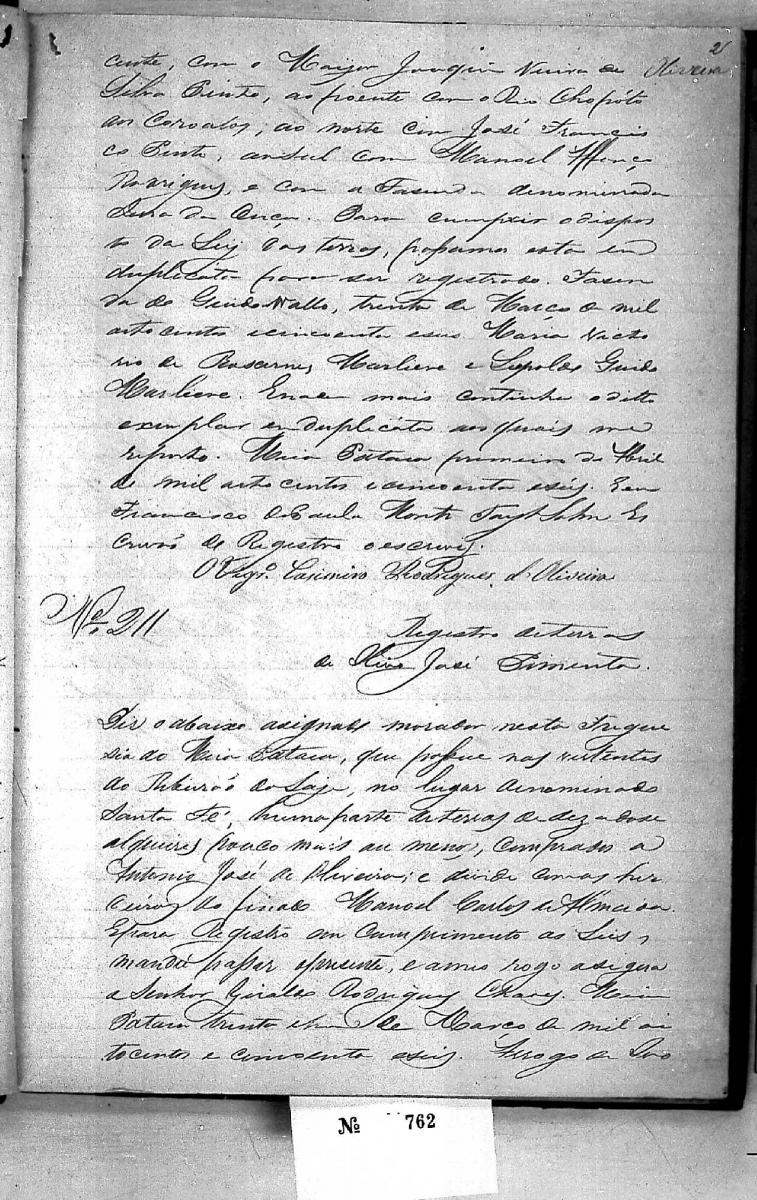 2
cente, com o Maijor Joaquim Vieira de Oliveira
Silva Pinto, ao poente com o Rio Chopóto
aos Coroatos, ao norte com José Francis
co Pinto, ao sul com Manoel
Rodrigues, e com a Fasenda denominada
da Onça. Para cumprir o dispos
to da Ley das terras, passamos esta em
duplicata para ser registrado. Fasen
da do Guidowallo, trinta de Março de mil
oito centos e cincoenta e seis Maria Victo
ria de Marliere e Lepoldo Guido
Marliere. E nada mais continha o ditto
exemplar em duplicáta aos quais me
reporto. Meia Pataca primeiro de Abril
de mil oito centos e cincoenta e seis. Eu
Francisco de Paula Es
crivão de Registro o escrevy.
O Vigrº. Casimiro Rodrigues d'Oliveira
Nº. 211
Registro de terras
de José Pimenta.
Diz o abaixo asignado morador nesta Fregue
sia do Meia Pataca, que possue nas vertentes
do Ribeirão do Laje, no lugar denominado
Santa Fé, huma parte de terras de dez a dose
alqueires pouco mais ou menos, comprados a
Antonio José de Oliveira, e divide com os her
deiros do finado Manoel Carlos de Almeida.
E para Registro em cumprimento as Leis,
mandei passar o presente, e a meu rogo asignou
o Senhor Giraldo Rodrigues Chaves. Meia
Pataca trinta e hum de Março de mil oi
tocentos e cincoenta e seis. Arrogo de
Nº 762